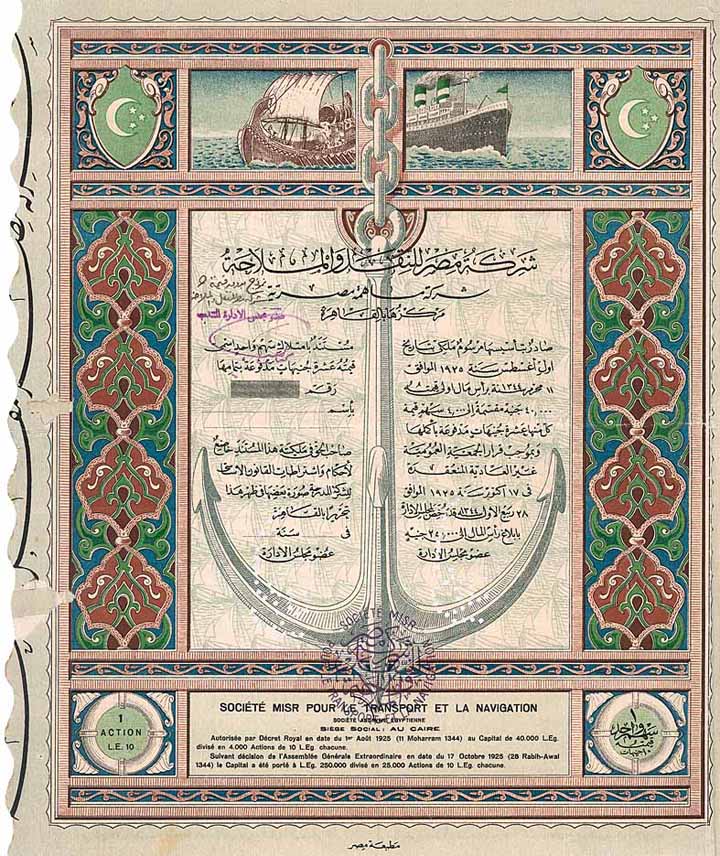 شركة مصر للنقل والملاحة
شركة مساهمة مصرية
مركزها بالقاهرة
عضو مجلس الادارة المنتدب
صادر بتأسيسها مرسوم ملكى بتاريخ
اول اغسطس سنة ١٩٢٥ الموافق
١١ محرم سنة ١٣٤٤ رأس مال اولى قدره
٤٠,٠٠٠ جنيه مقسمة الى ٤,٠٠٠ سهم قيمة
كل منها عشرة جنيهات مدفوعة بأكملها
وبموجب قرار الجمعية العمومية
غير العادية المنعقدة
فى ١٧ اكتوبر سنة ١٩٢٥ الموافق
٢٨ ربيع الاول ١٣٤٤ قد رخص لمجلس الادارة
بابلاغ رأس المال الى ٢٥٠,٠٠٠ جنيه
عضو مجلس الادارة
مستند بامتلاك سهم واحد اسمى
قيمته عشرة جنيهات مدفوعة بتمامها
رقم
باسم
صاحب الحق فى ملكية هذا المستند خاضع
لأحكام واشتراطات القانون الاساسى
للشركة المدرجة صورة بعضها فى ظهر هذا
تحريرا بالقاهرة
فى سنة
عضو مجلس الادارة
SOCIÉTÉ MISR
1
ACTION
L.E. 10
SOCIÉTÉ MISR POUR LE TRANSPORT ET LA NAVIGATION
SOCIÉTÉ ANONYME ÉGYPTIENNE
SIÈGE SOCIAL: AU CAIRE
Autorisée par Décret Royal en date du 1er Août 1925 (11 Moharrem 1344) au Capital de 40.000 L.Eg.
divisé en 4.000 Actions de 10 L.Eg. chacune.
Suivant décision de l'Assemblée Générale Extraordinaire en date du 17 Octobre 1925 (28 Rabih-Awal
1344) le Capital a été porté à L.Eg. 250.000 divisé en 25.000 Actions de 10 L.Eg. chacune.
سهم واحد
قيمته
١٠ جنيهات
مطبعة مصر